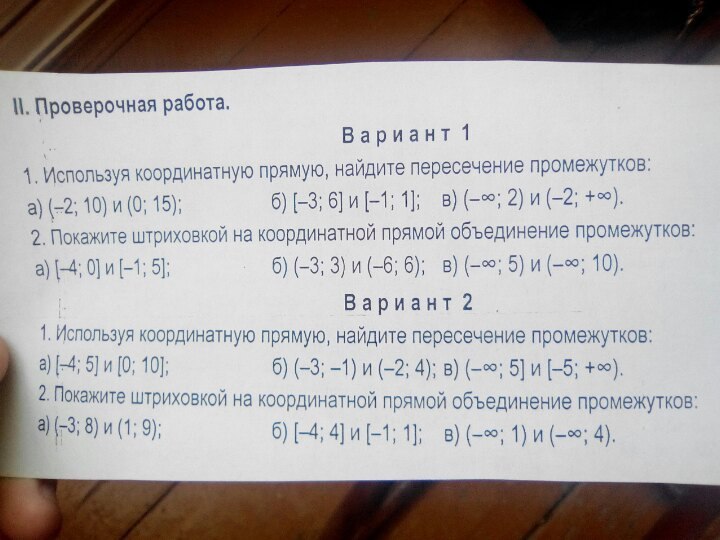 II. Проверочная работа.
Вариант 1
1. Используя координатную прямую, найдите пересечение промежутков:
а) (–2; 10) и (0; 15); б) [–3; 6] и [–1; 1]; в) (–∞; 2) и (–2; +∞).
2. Покажите штриховкой на координатной прямой объединение промежутков:
а) [–4; 0] и [–1; 5]; б) (–3; 3) и (–6; 6); в) (–∞; 5) и (–∞; 10).
Вариант 2
1. Используя координатную прямую, найдите пересечение промежутков:
а) [–4; 5] и [0; 10]; б) (–3; –1) и (–2; 4); в) (–∞; 5] и [–5; +∞).
2. Покажите штриховкой на координатной прямой объединение промежутков:
а) (–3; 8) и (1; 9); б) [–4; 4] и [–1; 1]; в) (–∞; 1) и (–∞; 4).